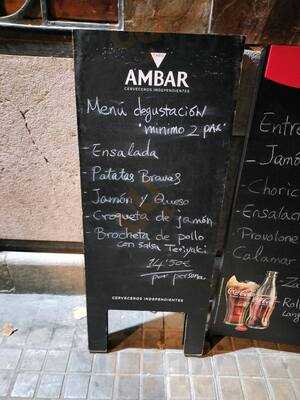 AMBAR
CERVECEROS INDEPENDIENTES
Menú degustación
"minimo 2 pax"
- Ensalada
- Patatas Bravas
- Jamón y Queso
- Croqueta de jamón
- Brocheta de pollo
con salsa Teriyaki
14'50€
por persona.
CERVECEROS INDEPENDIENTES
Entra
- Jamó
- Choric
- Ensalac
Provolone
Calamar
- Za
Coca-Cola